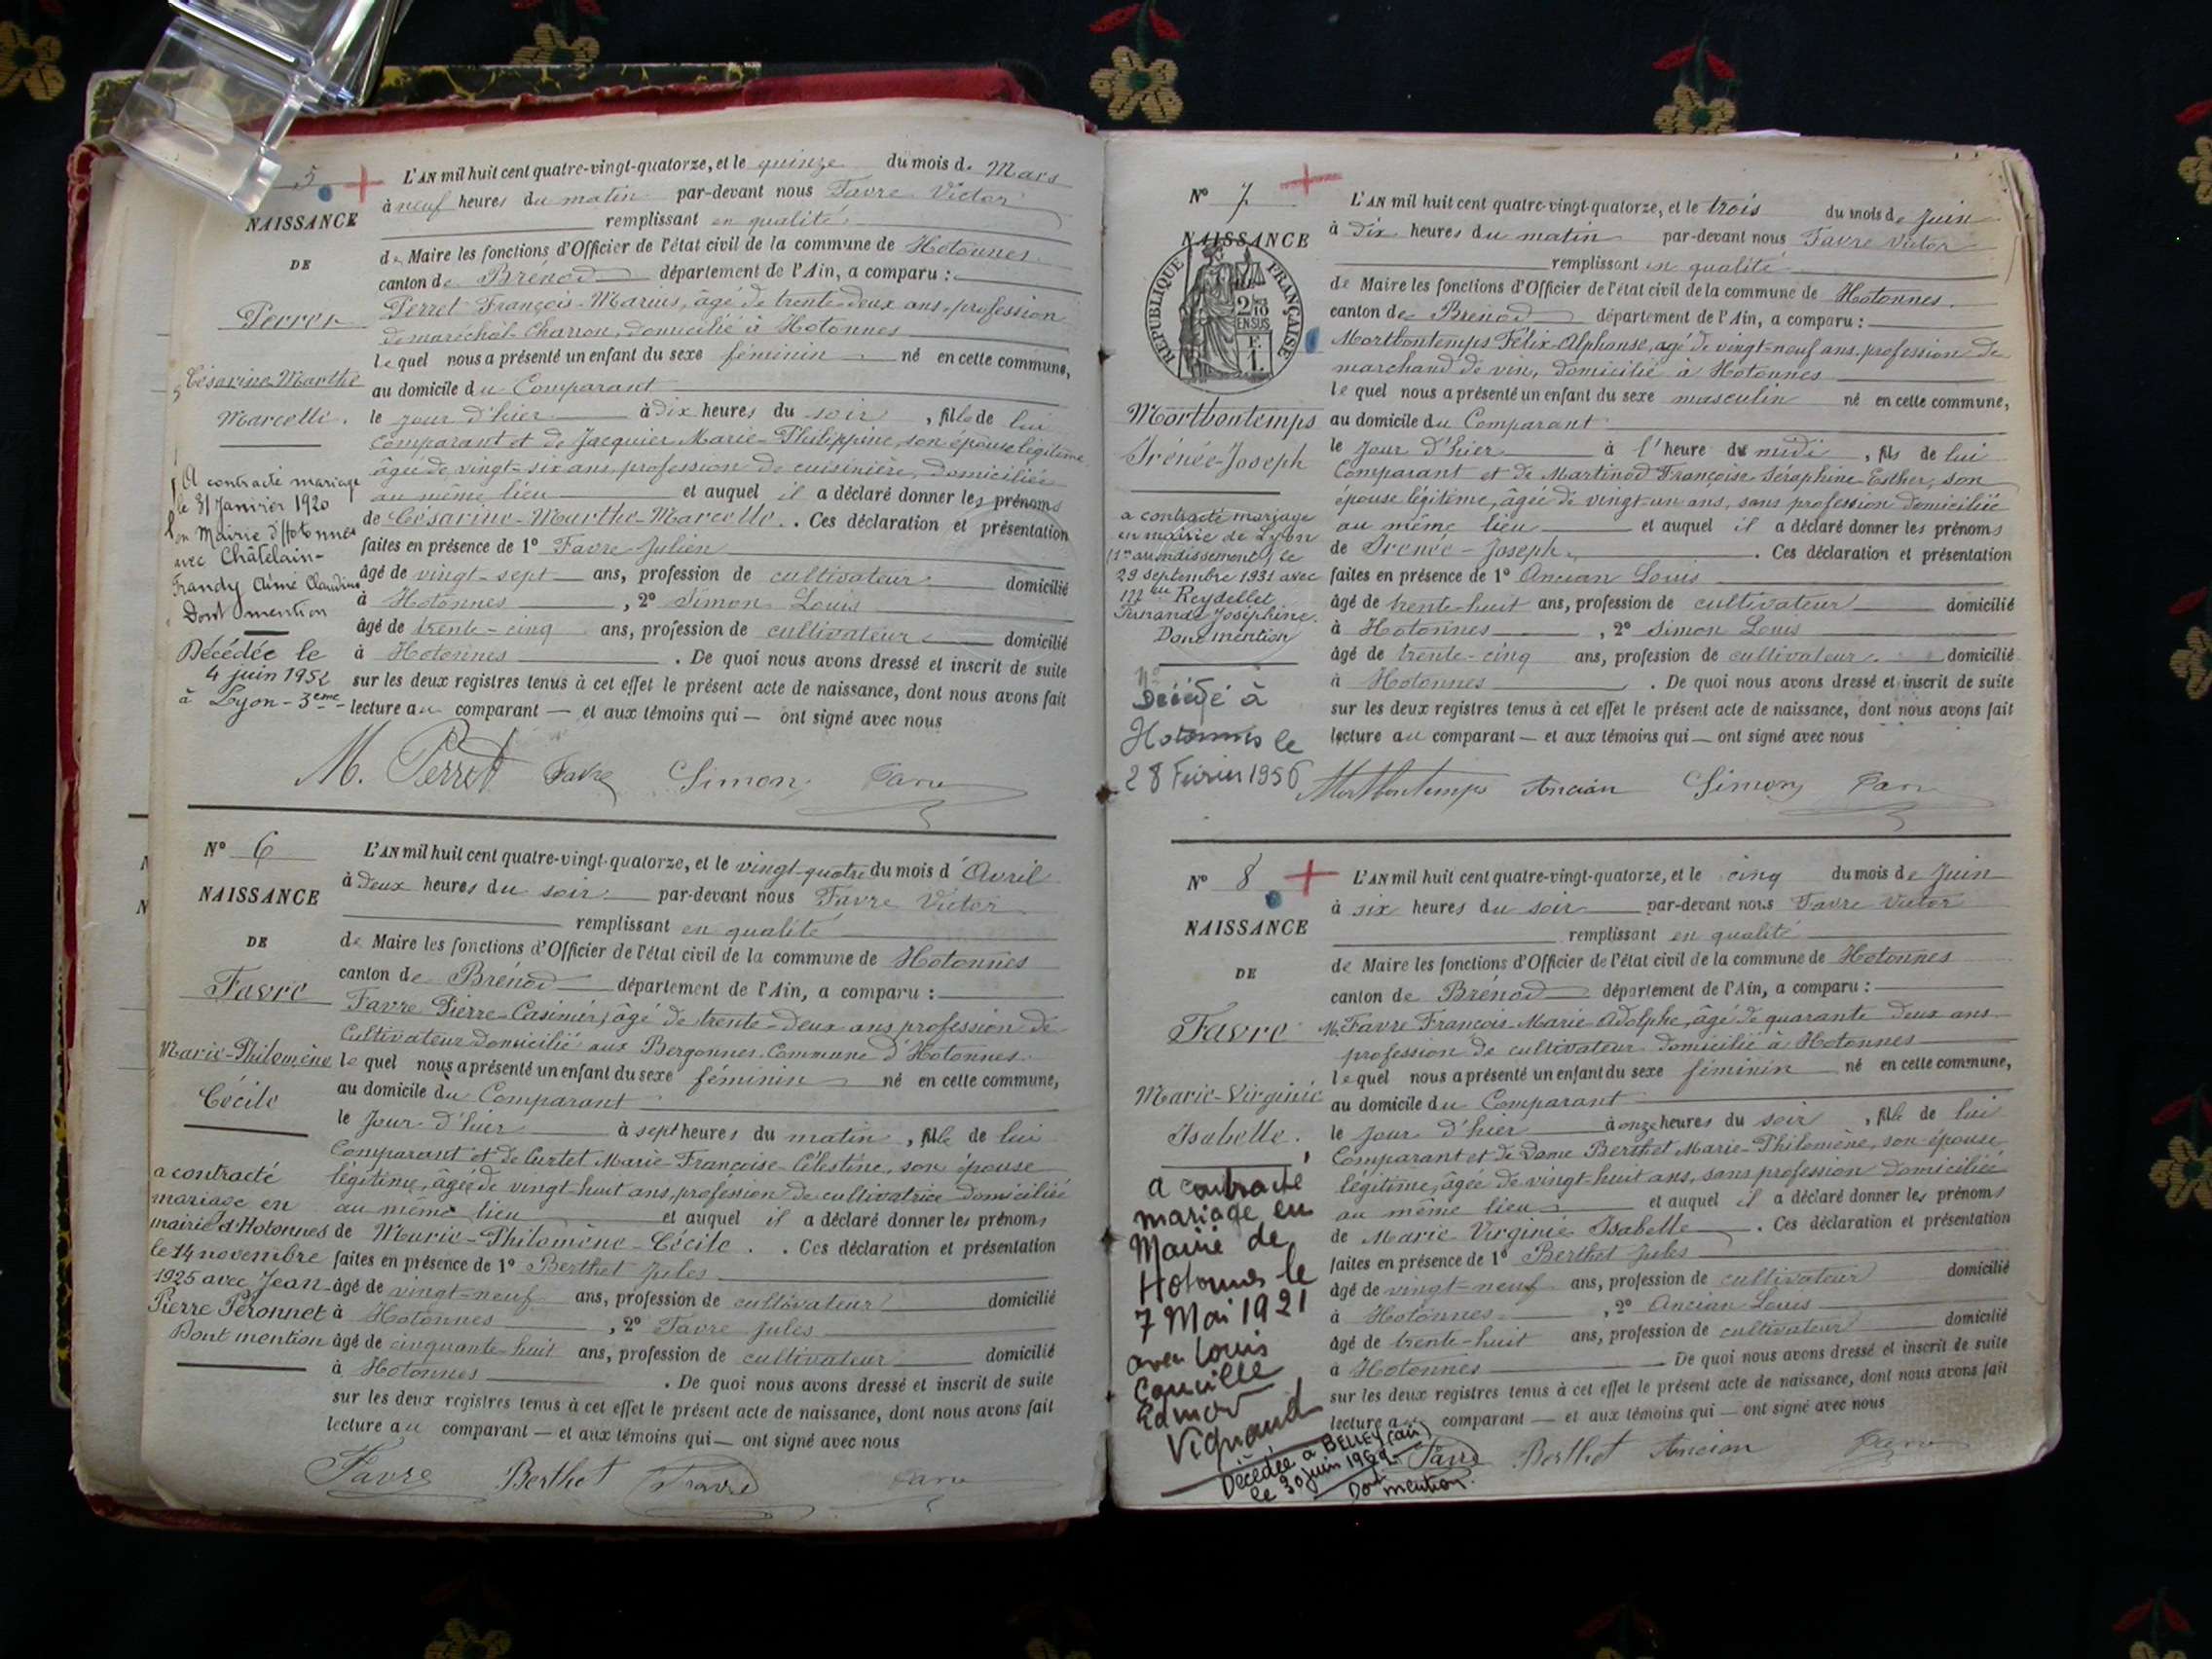 5
NAISSANCE
DE
Perret
Césarine-Marthe
Marcelle.
A contracté mariage
le 31 Janvier 1920
en Mairie d'Hotonnes
avec Châtelain-
Frandy Aimé Claudius
Dont mention
Décédée le
4 juin 1952
à Lyon - 3eme
L'AN mil huit cent quatre-vingt-quatorze, et le quinze du mois de Mars
à neuf heures du matin par-devant nous Favre Victor
remplissant en qualité
de Maire les fonctions d'Officier de l'état civil de la commune de Hotonnes
canton de Brénod département de l'Ain, a comparu :
Perret François-Marius, âgé de trente-deux ans, profession
de maréchal-Charron, domicilié à Hotonnes
lequel nous a présenté un enfant du sexe féminin né en cette commune,
au domicile du Comparant
le jour d'hier à dix heures du soir, fille de lui
Comparant et de Jacquier Marie-Philippine, son épouse légitime
âgée de vingt-six ans, profession de cuisinière, domiciliée
au même lieu et auquel il a déclaré donner les prénoms
de Césarine-Marthe-Marcelle. . Ces déclaration et présentation
faites en présence de 1° Favre Julien
âgé de vingt-sept ans, profession de cultivateur domicilié
à Hotonnes , 2° Simon Louis
âgé de trente-cinq ans, profession de cultivateur domicilié
à Hotonnes . De quoi nous avons dressé et inscrit de suite
sur les deux registres tenus à cet effet le présent acte de naissance, dont nous avons fait
lecture au comparant — et aux témoins qui — ont signé avec nous
M. Perret Favre Simon Favre
N° 6
NAISSANCE
DE
Favre
Marie-Philomène
Cécile
a contracté
mariage en
mairie d'Hotonnes
le 14 novembre
1925 avec Jean-
Pierre Péronnet
Dont mention
L'AN mil huit cent quatre-vingt-quatorze, et le vingt-quatre du mois d'Avril
à deux heures du soir par-devant nous Favre Victor
remplissant en qualité
de Maire les fonctions d'Officier de l'état civil de la commune de Hotonnes
canton de Brénod département de l'Ain, a comparu :
Favre Pierre-Casimir, âgé de trente-deux ans profession de
Cultivateur domicilié aux Bergonnes Commune d'Hotonnes
lequel nous a présenté un enfant du sexe féminin né en cette commune,
au domicile du Comparant
le jour d'hier à sept heures du matin, fille de lui
Comparant et de Curtet Marie-Françoise-Célestine, son épouse
légitime, âgée de vingt-huit ans, profession de cultivatrice domiciliée
au même lieu et auquel il a déclaré donner les prénoms
de Marie-Philomène-Cécile. . Ces déclaration et présentation
faites en présence de 1° Berthet Jules
âgé de vingt-neuf ans, profession de cultivateur domicilié
à Hotonnes , 2° Favre Jules
âgé de cinquante-huit ans, profession de cultivateur domicilié
à Hotonnes . De quoi nous avons dressé et inscrit de suite
sur les deux registres tenus à cet effet le présent acte de naissance, dont nous avons fait
lecture au comparant — et aux témoins qui — ont signé avec nous
Favre Berthet Favre Favre
N° 7
NAISSANCE
RÉPUBLIQUE FRANÇAISE
2/10
EN SUS
F.
1.
Mortbontemps
Irénée-Joseph
a contracté mariage
en mairie de Lyon
(1er arrondissement) le
29 septembre 1931 avec
Mlle Reydellet
Fernande Joséphine.
Dont mention
Décédé à
Hotonnes le
28 Février 1956
L'AN mil huit cent quatre-vingt-quatorze, et le trois du mois de Juin
à dix heures du matin par-devant nous Favre Victor
remplissant en qualité
de Maire les fonctions d'Officier de l'état civil de la commune de Hotonnes.
canton de Brénod département de l'Ain, a comparu :
Mortbontemps Félix-Alphonse, âgé de vingt-neuf ans, profession de
marchand de vin, domicilié à Hotonnes
lequel nous a présenté un enfant du sexe masculin né en cette commune,
au domicile du Comparant
le jour d'hier à l'heure de midi, fils de lui
Comparant et de Martinod Françoise-Séraphine-Esther, son
épouse légitime, âgée de vingt-un ans, sans profession domiciliée
au même lieu et auquel il a déclaré donner les prénoms
de Irénée-Joseph. . Ces déclaration et présentation
faites en présence de 1° Ancian Louis
âgé de trente-huit ans, profession de cultivateur domicilié
à Hotonnes , 2° Simon Louis
âgé de trente-cinq ans, profession de cultivateur. domicilié
à Hotonnes . De quoi nous avons dressé et inscrit de suite
sur les deux registres tenus à cet effet le présent acte de naissance, dont nous avons fait
lecture au comparant — et aux témoins qui — ont signé avec nous
Mortbontemps Ancian Simon Favre
N° 8
NAISSANCE
DE
Favre
Marie-Virginie
Isabelle.
a contracté
mariage en
Mairie de
Hotonnes le
7 Mai 1921
avec Louis
Camille
Edmond
Vignand
Décédée à BELLEY (Ain)
le 30 juin 1969
Dont mention.
L'AN mil huit cent quatre-vingt-quatorze, et le cinq du mois de Juin
à six heures du soir par-devant nous Favre Victor
remplissant en qualité
de Maire les fonctions d'Officier de l'état civil de la commune de Hotonnes
canton de Brénod département de l'Ain, a comparu :
M. Favre François-Marie-Adolphe, âgé de quarante deux ans
profession de cultivateur domicilié à Hotonnes
lequel nous a présenté un enfant du sexe féminin né en cette commune,
au domicile du Comparant
le jour d'hier à onze heures du soir, fille de lui
Comparant et de Dame Berthet Marie-Philomène, son épouse
légitime, âgée de vingt-huit ans, sans profession domiciliée
au même lieu et auquel il a déclaré donner les prénoms
de Marie Virginie Isabelle . Ces déclaration et présentation
faites en présence de 1° Berthet Jules
âgé de vingt-neuf ans, profession de cultivateur domicilié
à Hotonnes , 2° Ancian Louis
âgé de trente-huit ans, profession de cultivateur domicilié
à Hotonnes . De quoi nous avons dressé et inscrit de suite
sur les deux registres tenus à cet effet le présent acte de naissance, dont nous avons fait
lecture au comparant — et aux témoins qui — ont signé avec nous
Favre Berthet Ancian Favre